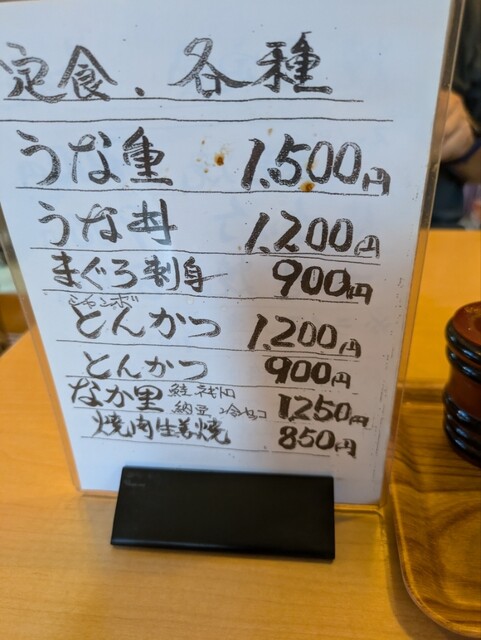 定食、各種
うな重 1,500円
うな丼 1,200円
まぐろ刺身 900円
ジャンボ
とんかつ 1,200円
とんかつ 900円
なか里 鮭 ネギトロ
納豆 冷やっこ 1,250円
焼肉生姜焼 850円